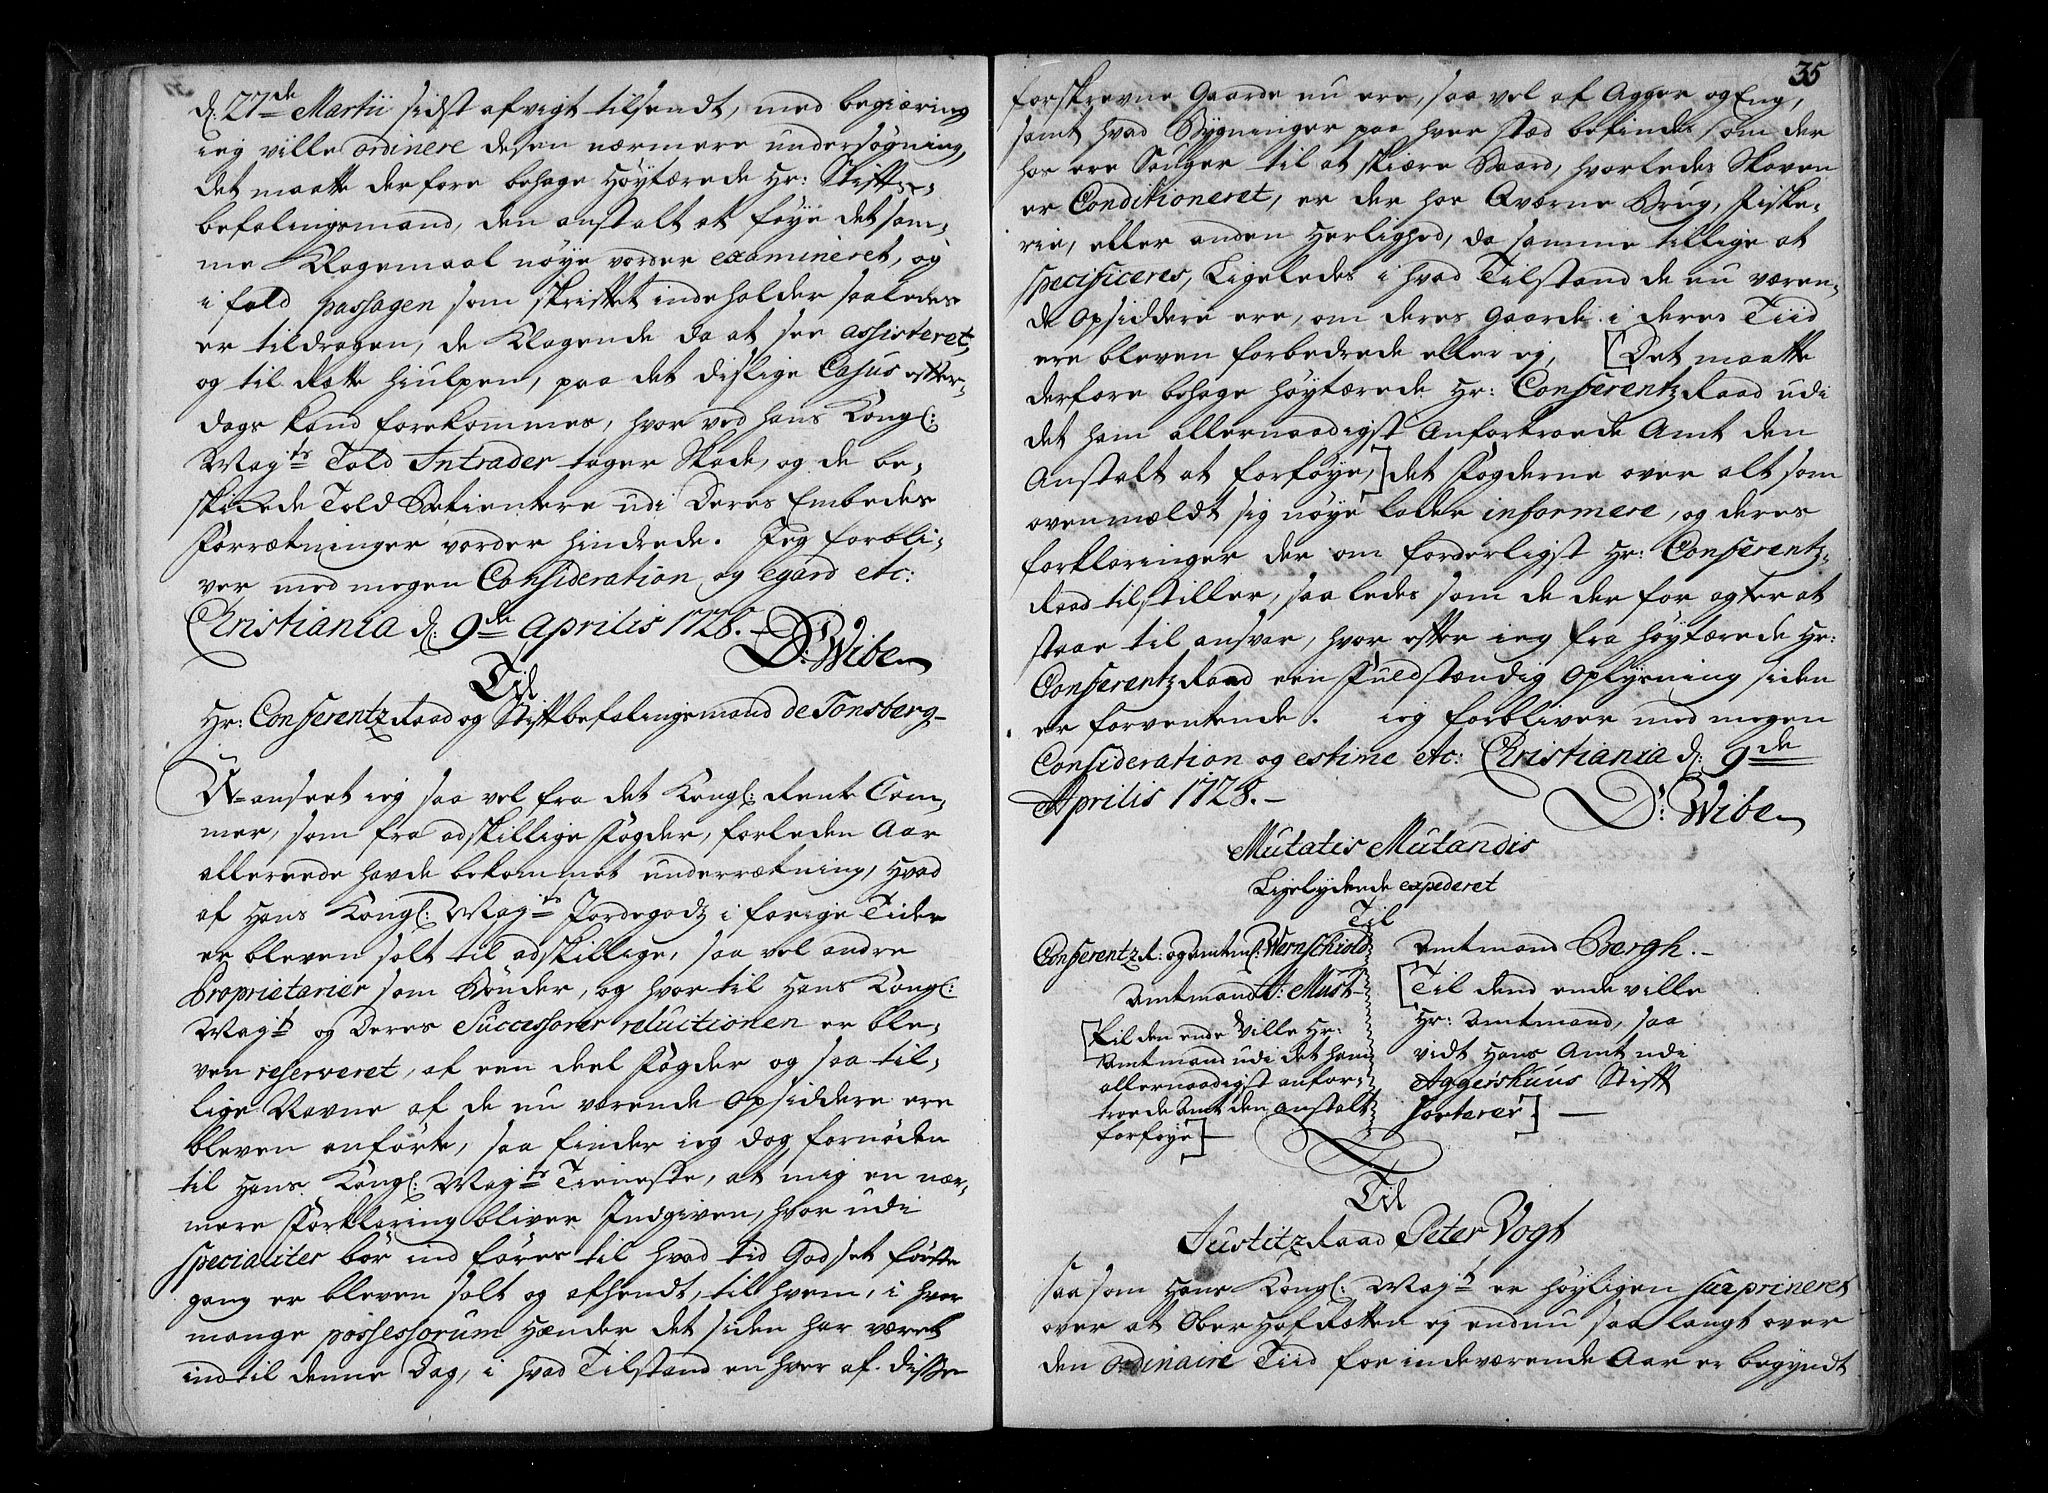 d: 27de Martii sidst afvigt tilsendt, med begiæring
ieg ville ordinere desen nærmere undersøgning,
det maatte derfore behage Høytærede Hr: Stifts-
befalingsmand, den anstalt at føye det sam-
me Klagemaal nøye vorder examineret, og
i fald passagen som skriftet indeholder saaledes
er tildragen, de Klagende da at see assisteret,
og til Rætte hiulpen, paa det dislige Casus efter-
dags kand forekommes, hvor ved hans Kongl:
Mayts Told Intrader tager Skade, og de be-
skikkede Told Betientere udi Deres Embedes
Forrætninger vorder hindrede. Jeg forbli-
ver med megen Consideration og egard etc:
Christiania d: 9de Aprilis 1728.
D: Wibe
Til
Hr: ConferentzRaad og Stiftbefalingsmand de Tonsberg
U-anseet ieg saa vel fra det Kongl: Rente Cam-
mer, som fra adskillige Fogder, forleden Aar
allereede havde bekommet underrætning, hvad
af Hans Kongl: Mayts Jordegodz i forige Tider
er bleven solt til adskillige, saa vel andre
Proprietarier som Bønder, og hvortil Hans Kongl:
Mayt og Deres Successorer reluctionen er ble-
ven reserveret, af een deel Fogder og saa til-
lige Navne af de nu værende Opsiddere ere
bleven anførte, saa finder ieg dog fornøden
til Hans Kongl: Mayts Tieneste, at mig en nær-
mere Forklaring bliver Indgiven, hvor udi
specialiter bør ind føres til hvad tid Godset første
gang er bleven solt og afhendt, til hvem, i hvor
mange possessorum Hænder det siden har været
ind til denne Dag, i hvad Tilstand en hver af disse
35
forskrevne Gaarde nu ere, saa vel af Agger og Eng,
samt hvad Bygninger paa hver stæd befindes som der
hos ere Sauger til at skiære Baard, hvorledes Skoven
er Conditioneret, er der hos Qværne Brug, Fiske-
rie, eller anden Herlighed, da samme tillige at
specificeres, Ligeledes i hvad Tilstand de nu væren-
de Opsiddere ere, om deres Gaarde i deres Tiid
ere bleven forbedrede eller ej, [Det maatte
derfore behage Høytærede Hr: ConferentzRaad udi
det ham allernaadigst Anfortroede Amt den
Anstalt at forføye,] det Fogderne over alt som
ovenmældt sig nøye lader informere, og deres
forklaringer der om forderligst Hr: Conferentz-
Raad tilstiller, saaledes som de der for agter at
staae til ansvar, hvor efter ieg fra Høytærede Hr:
ConferentzRaad een Fuldstændig Oplysning siden
er forventende. ieg forbliver med megen
Consideration og estime etc: Christiania d: 9de
Aprilis 1728.
D: Wibe
Mutatis Mutandis
Ligelydende expederet
Til
Conferentz R: og Amtm: Wernschiold
Amtmand Must
[til den ende Ville Hr:
Amtmand udi det ham
allernaadigst anfor-
troede Amt den Anstalt
forføye]
Amtmand Bergh.
[Til dend ende ville
Hr: Amtmand, saa
vidt Hans Amt udi
Aggershuus Stift
sorterer]
Til
JustitzRaad Peter Vogt
Saasom Hans Kongl: Mayt er høyligen surprineret
over at Ober Hof Rætten ej endnu saa langt over
den ordinaire Tiid for indeværende Aar er begyndt